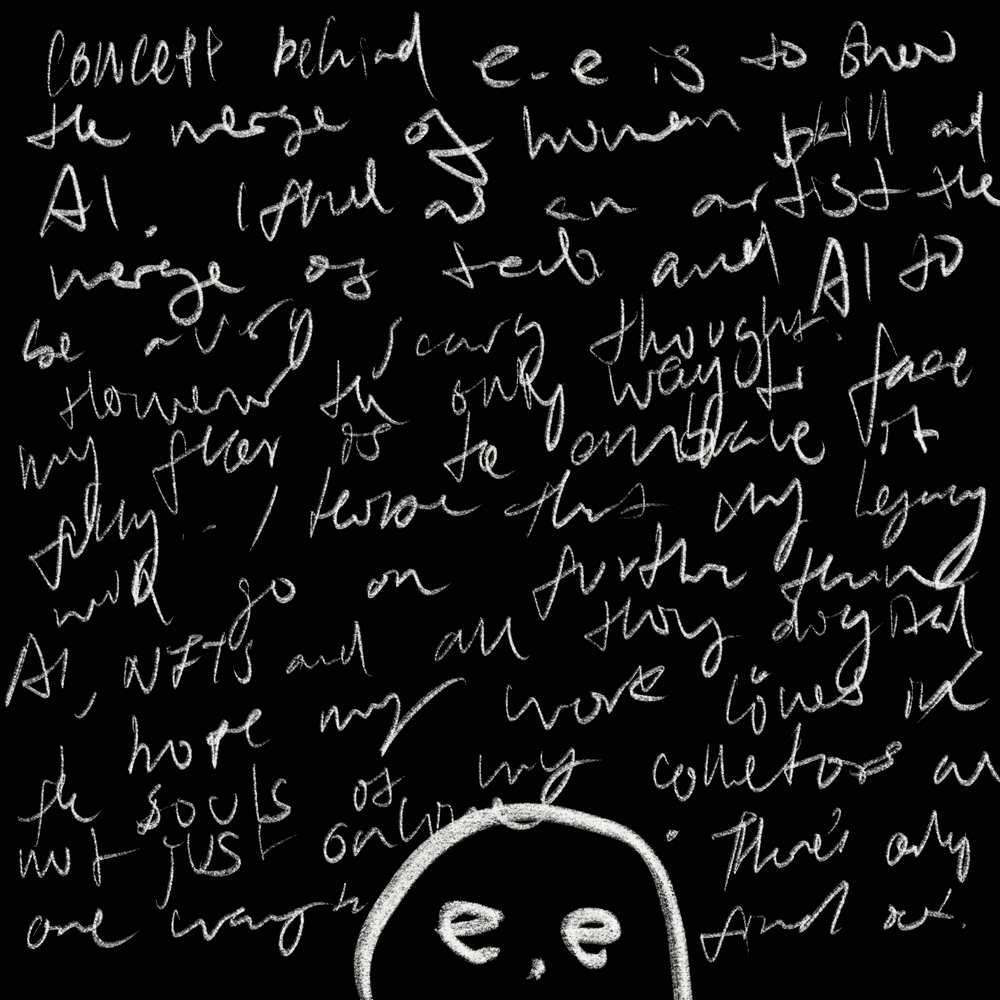 concept behind e-e is to show
the merge of human skill and
AI. I find as an artist the
merge of tech and AI to
be a very scary thought.
However the only way to face
my fear is to embrace it
fully. I know that my legacy
will go on further than
AI, NFTs and all things digital
I hope my work lives in
the souls of my collectors and
not just online. There's only
one way to find out.
e e